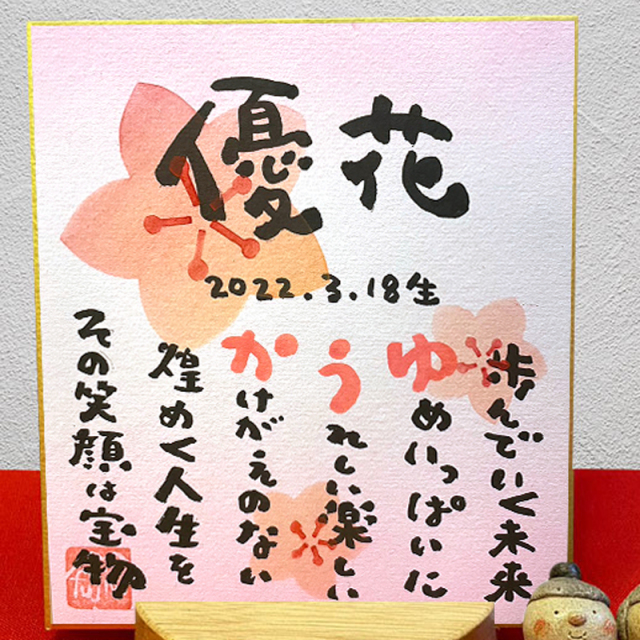 優花
2022.3.18生
歩んでいく未来
ゆめいっぱいに
うれしい楽しい
かけがえのない
煌めく人生を
その笑顔は宝物